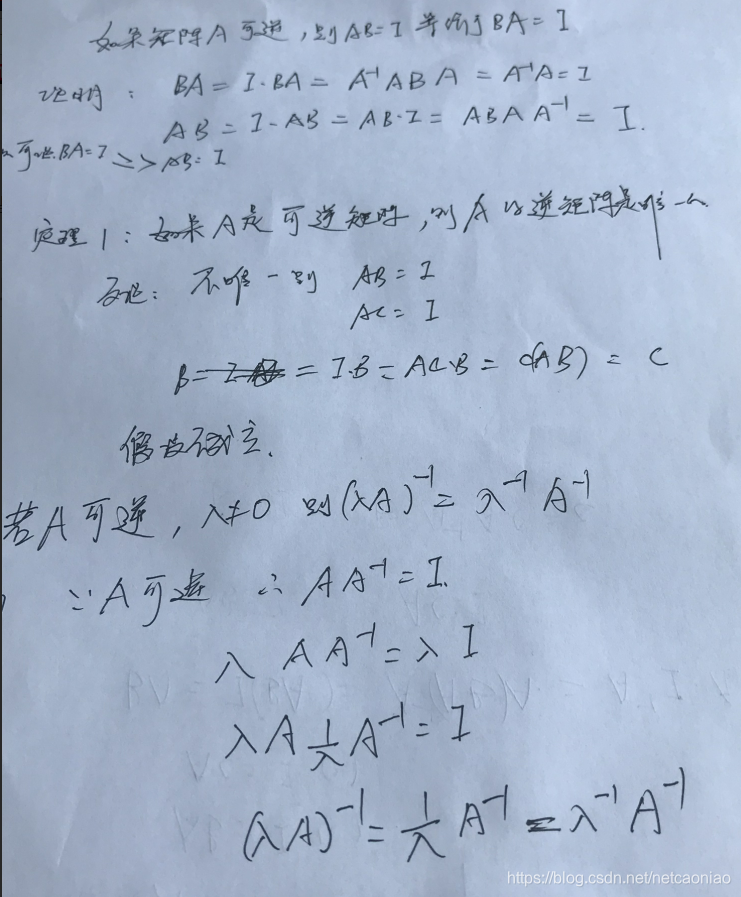 如果矩阵A可逆,则AB=I 等价于BA=I
证明: BA = I·BA = A⁻¹ABA = A⁻¹A = I
AB = I·AB = AB·I = ABAA⁻¹ = I.
可证.BA=I => AB=I
定理1:如果A是可逆矩阵,则A的逆矩阵是唯一
反证: 不唯一则 AB = I
AC = I
B = = I·B = AC·B = C(AB) = C
假设不成立.
若A可逆, λ≠0 则(λA)⁻¹ = λ⁻¹A⁻¹
∵A可逆 ∴ AA⁻¹ = I.
λ AA⁻¹ = λ I
λA 1/λ A⁻¹ = I
(λA)⁻¹ = 1/λ A⁻¹ = λ⁻¹A⁻¹
https://blog.csdn.net/netcaoniao